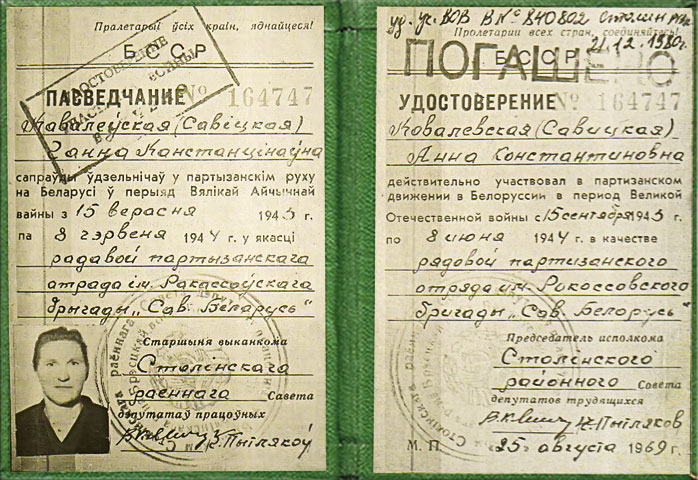 Пралетарыі ўсіх краін, яднайцеся!
БССР
УДОСТОВЕРЕНИЕ
ВОЙНЫ
ПАСВЕДЧАНИЕ № 164747
Кавалеўская (Савіцкая)
Ганна Канстанцінаўна
сапраўды ўдзельнічаў у партызанскім руху
на Беларусі ў перыяд Вялікай Айчыннай
вайны з 15 верасня 1943 г.
па 8 чэрвеня 1944 г. у якасці
радавой партызанскага
атрада ім. Ракассоўскага
брыгады „Сав. Беларусь“
Старшыня выканкома
Столінскага
раённага Савета
дэпутатаў працоўных
К. Пытлякоў
уд. уч. ВОВ В № 840802 Столин РВК
Пролетарии всех стран, соединяйтесь!
21.12.1980г.
БССР
ПОГАШЕНО
УДОСТОВЕРЕНИЕ № 164747
Ковалевская (Савицкая)
Анна Константиновна
действительно участвовал в партизанском
движении в Белоруссии в период Великой
Отечественной войны с 15 сентября 1943 г.
по 8 июня 1944 г. в качестве
рядовой партизанского
отряда им. Рокоссовского
бригады „Сов. Белорусь“
Председатель исполкома
Столінского
районного Совета
депутатов трудящихся
К. Пытляков
М. П. 25 августа 1969 г.